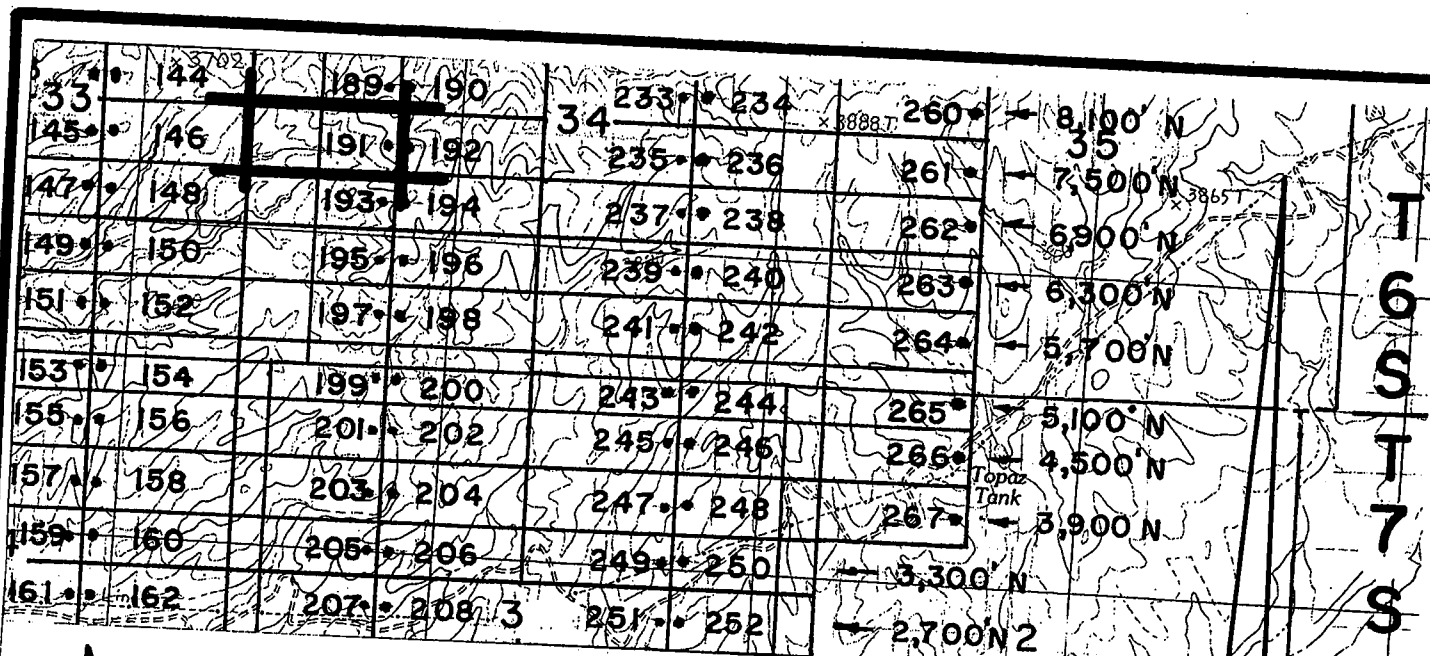 ×3702
144 189 190 233 234 260 8,100' N
33 34 ×3888T 35
145 146 191 192 235 236 261 7,500'N
×3865T
147 148 193 194 237 238 262 6,900'N
149 150 195 196 239 240 263 6,300'N
151 152 197 198 241 242 264 5,700'N
153 154 199 200 243 244 265 5,100'N
155 156 201 202 245 246 266 4,500'N
Topaz
Tank
157 158 203 204 247 248 267 3,900'N
159 160 205 206 249 250 3,300'N
161 162 207 208 3 251 252 2,700'N 2
T
6
S
T
7
S